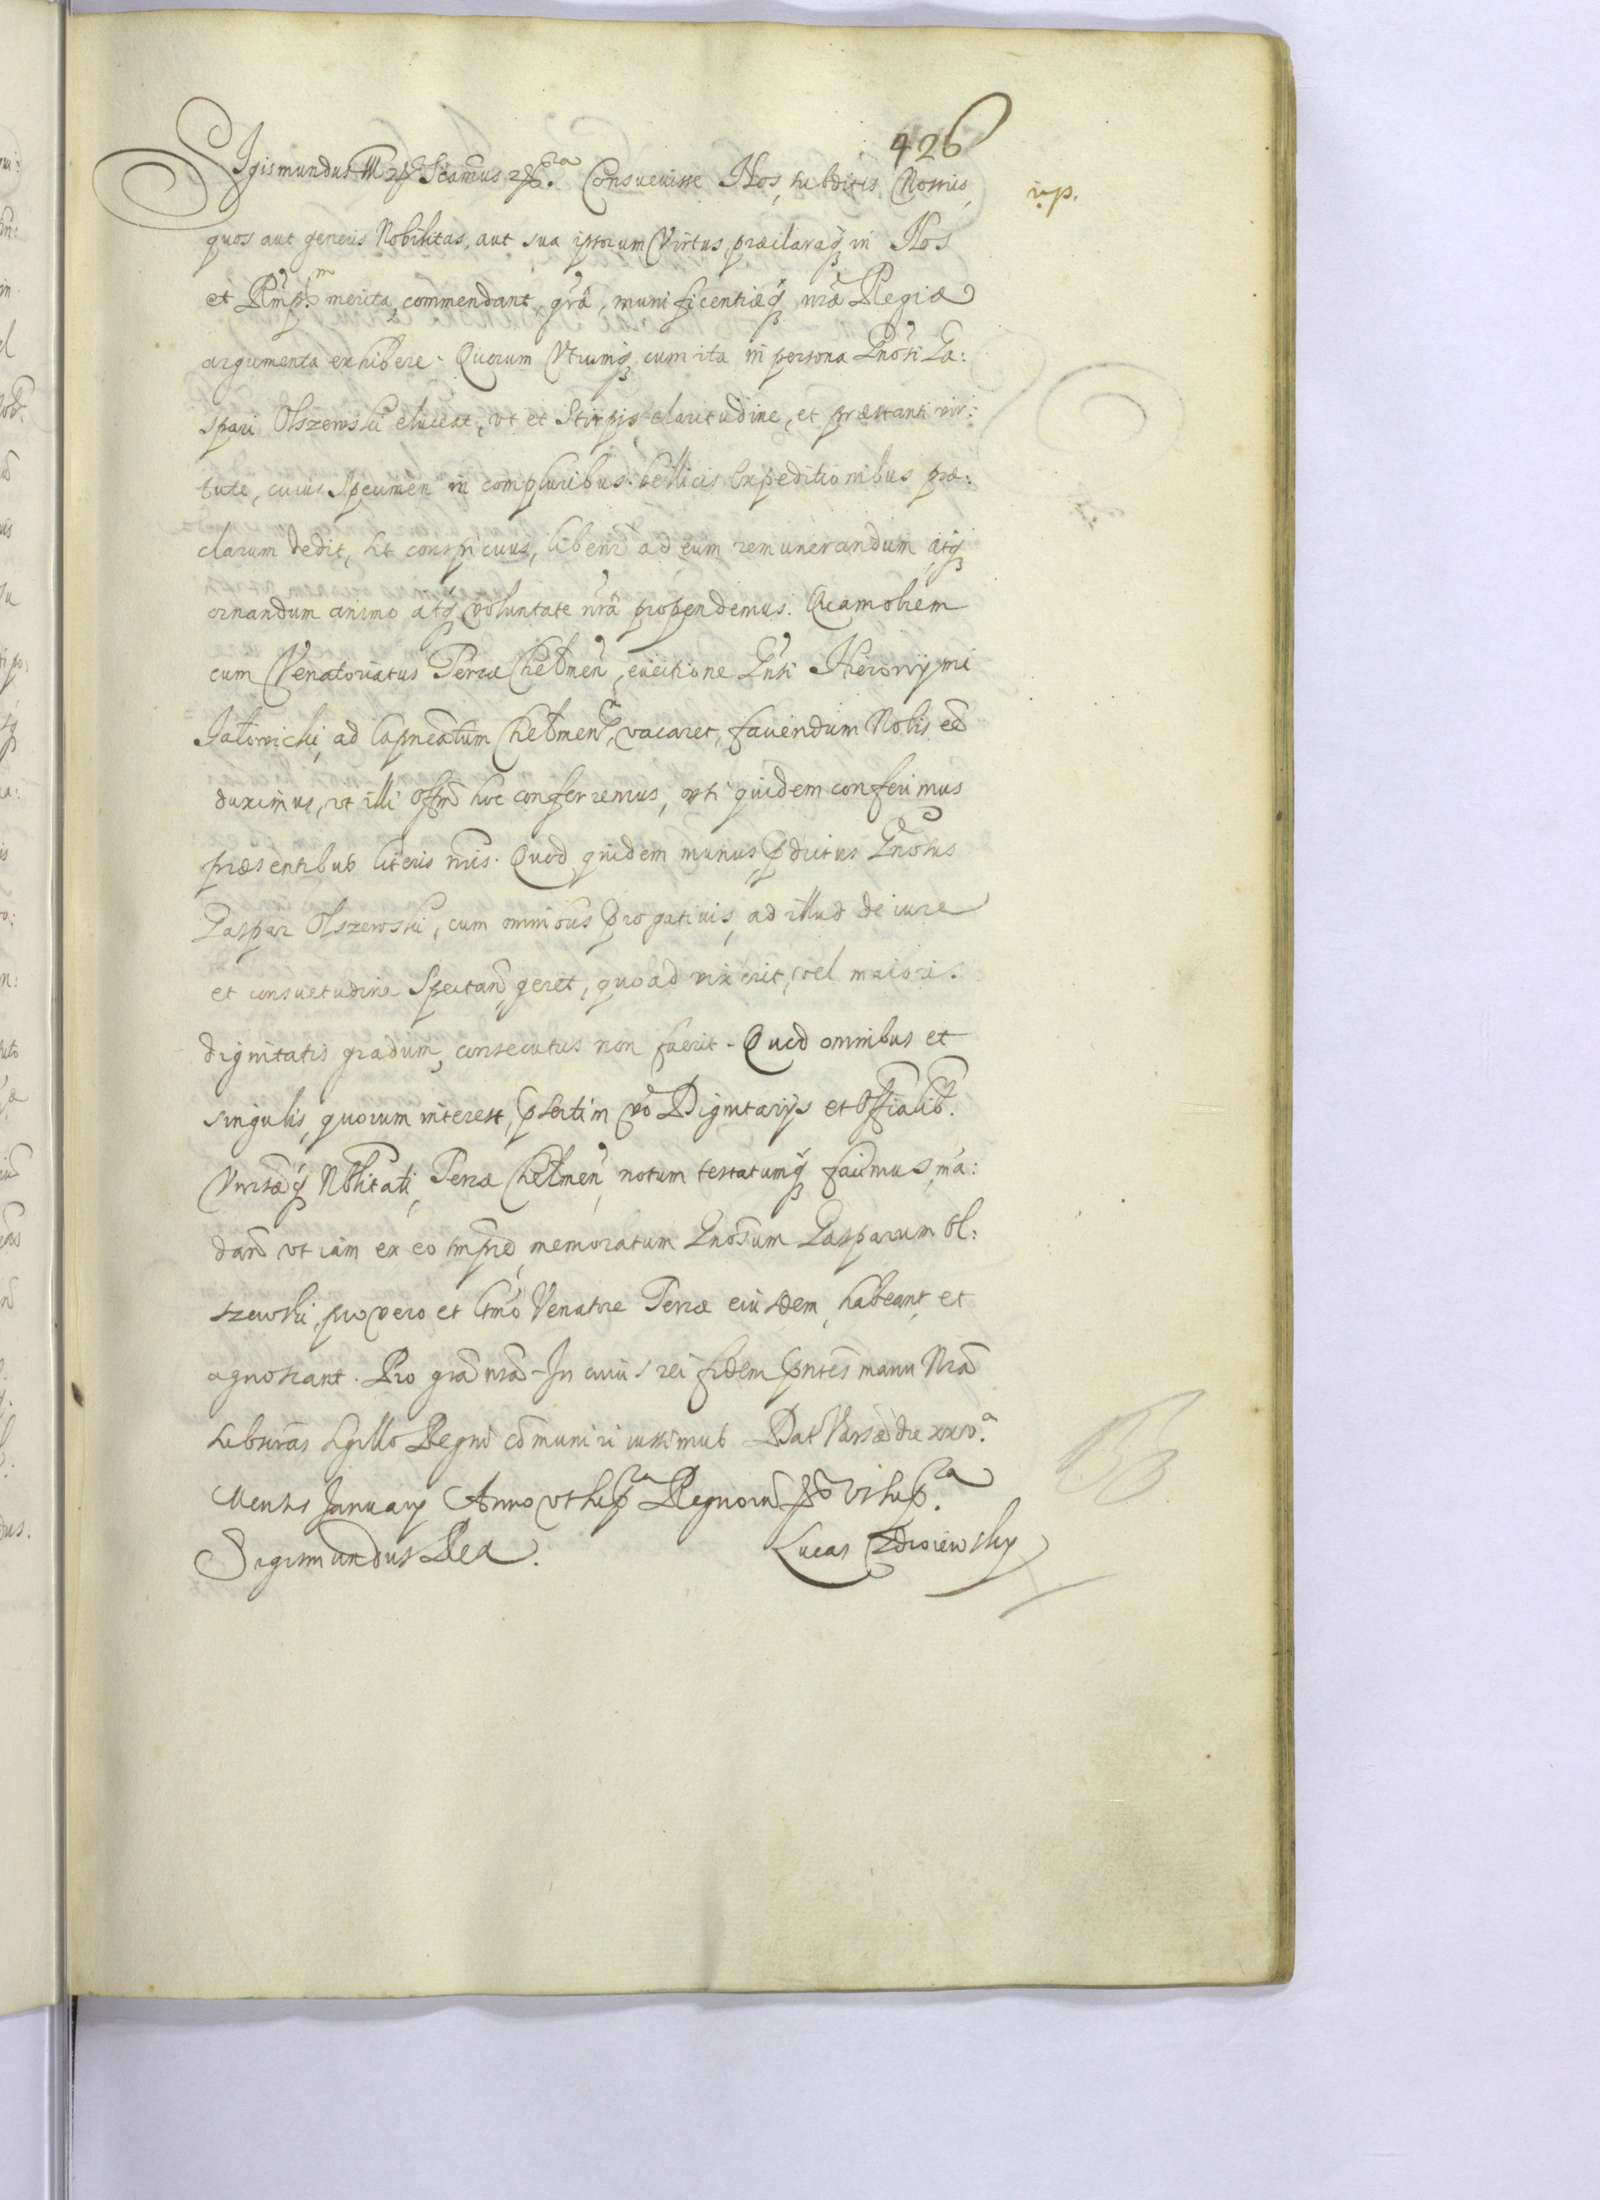 426
Sigismundus III etc. Scamus etc. Consuevisse Nos, subditis Nostris,
v.p.
quos aut generis Nobilitas, aut sua ipsorum Virtus, præclaraq in Nos
et Remp. merita, commendant, grã, munificentiæq nræ Regiæ
argumenta exhibere. Quorum Utrumq cum ita in persona Gnosi Ga:
spari Olszewski eluceat, ut et Stirpis claritudine, et præstanti vir:
tute, cuius Specimen in compluribus bellicis Expeditionibus præ:
clarum dedit, sit conspicuus, libenr ad eum remunerandum atq
ornandum animo atq voluntate nrã propendemus. Quamobrem
cum Venatoriatus Terræ Chelmen, evectione Gnsi Hieronymi
Jałowicki, ad Dapiferatum Chelmens, vacaret, faciendum Nobis eē
duximus, ut illi Offm hoc conferremus, uti quidem conferimus
præsentibus literis nris. Quod quidem munus, pdictus Gnosus
Gaspar Olszewski, cum omnibus progativis, ad illud de iure
et consuetudine Spectan, geret, quoad vixerit, vel maioris
dignitatis gradum, consecutus non fuerit. Quod omnibus et
singulis, quorum interest, psertim vo Dignitarijs et Officialib.
Univsæq Nobilitati, Terræ Chelmen, notum testatumq facimus, ma:
dan ut iam ex eo tmpre, memoratum Gnosum Gasparum Ol:
szewski, pro vero et ltmo Venatore Terræ eiusdem, habeant, et
agnoscant. Pro grã nrã. In cuius rei fidem pntes manu Nrã
subscras sigillo Regni cõmuniri iussimus. Dat Varsæ die xxiv.
Mensis January Anno ut sup Regnorũ ut sup.
Sigismundus Rex.
Lucas